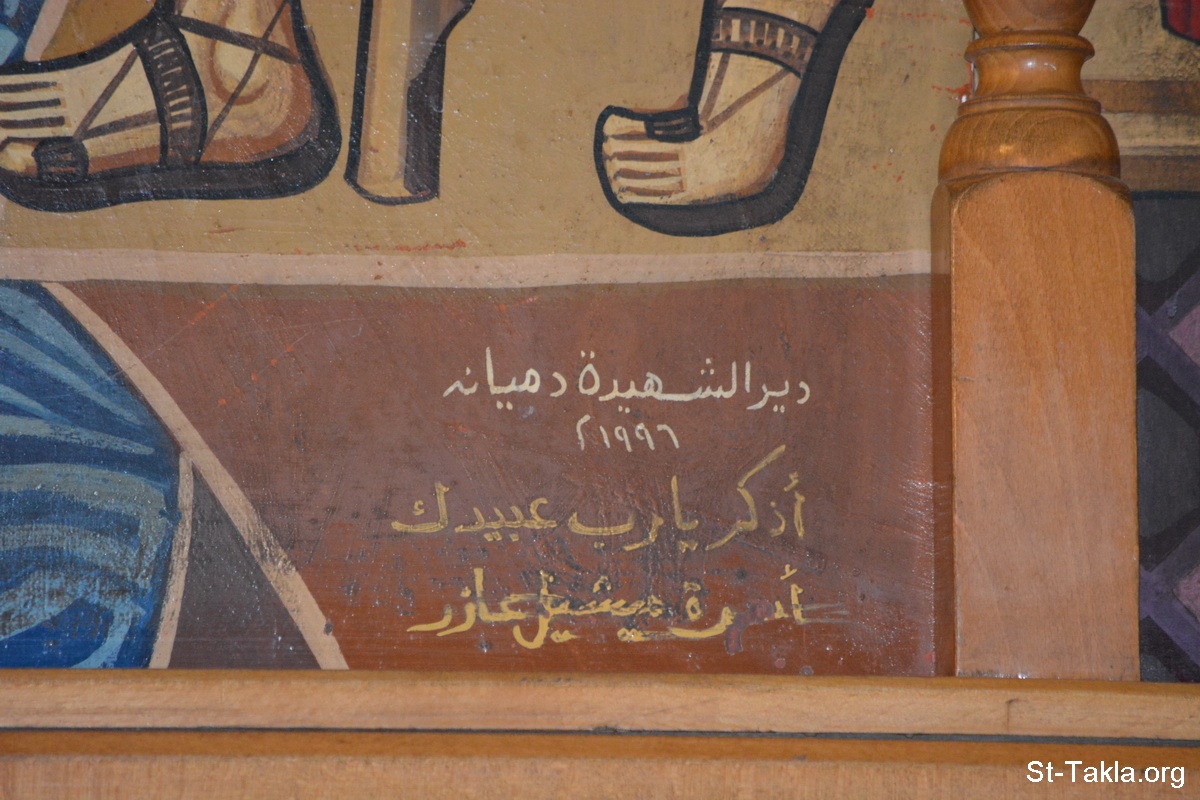 دير الشهيدة دميانه
١٩٩٦ م
أذكر يا رب عبيدك
أسرة ميشيل عازر
St-Takla.org